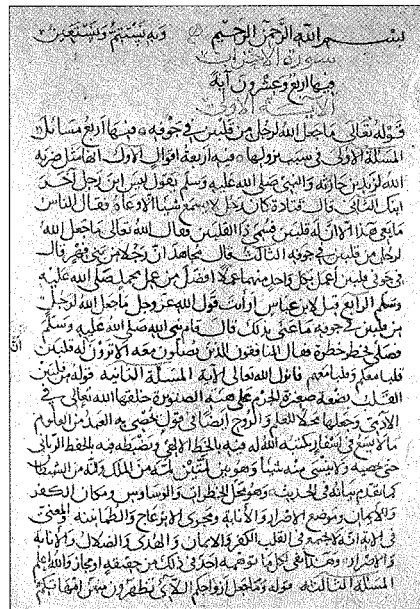 بسم الله الرحمن الرحيم وبه نستعين
سورة الاحزاب
فيها اربع وعشرون آية
الآية الاولى
قوله تعالى ما جعل الله لرجل من قلبين في جوفه فيها اربع مسائل
المسئلة الاولى في سبب نزولها فيه اربعة اقوال الاول انها مثل ضربه
الله لزيد بن حارثة والنبي صلى الله عليه وسلم يقول ليس ابن رجل آخر
ابنك الثاني قال قتادة كان رجل لا يسمع شيئا الا وعاه فقال الناس
ما يعي هذا الا ان له قلبين فسمي ذا القلبين فقال الله تعالى ما جعل الله
لرجل من قلبين في جوفه الثالث قال مجاهد ان رجلا من بني فهر قال
في جوفي قلبين اعمل بكل واحد منهما عملا افضل من عمل محمد صلى الله عليه
وسلم الرابع قيل لابن عباس أرأيت قول الله عز وجل ما جعل الله لرجل
من قلبين في جوفه ما عنى بذلك قال قام نبي الله صلى الله عليه وسلم
فصلى فخطر خطرة فقال المنافقون الذين يصلون معه الا ترون له قلبين
قلبا معكم وقلبا معهم فانزل الله تعالى الآية المسئلة الثانية قوله من قلبين
القلب بضعة صغيرة الجرم على هيئة الصنوبرة خلقها الله تعالى في
الآدمي وجعلها محلا للعلم والروح ايضا في قول يحصي به العبد من العلوم
ما لا يسع في اسفار يكتبه الله له فيه بالخط الالهي ويضبطه فيه بالحفظ الرباني
حتى يحصيه ولا ينسى منه شيئا وهو بين لمتين لمة من الملك ولمة من الشيطان
كما تقدم بيانه في الحديث وهو محل الخطرات والوساوس ومكان الكفر
والايمان وموضع الاصرار والانابة ومجرى الانزعاج والطمانينة والمعنى
في الآية انه لا يجتمع في القلب الكفر والايمان والهدى والضلال والانابة
والاصرار وهذا نفي لكل ما توهمه احد في ذلك من حقيقة او مجاز والله اعلم
المسئلة الثالثة قوله وما جعل ازواجكم اللائي تظهرون منهن امهاتكم